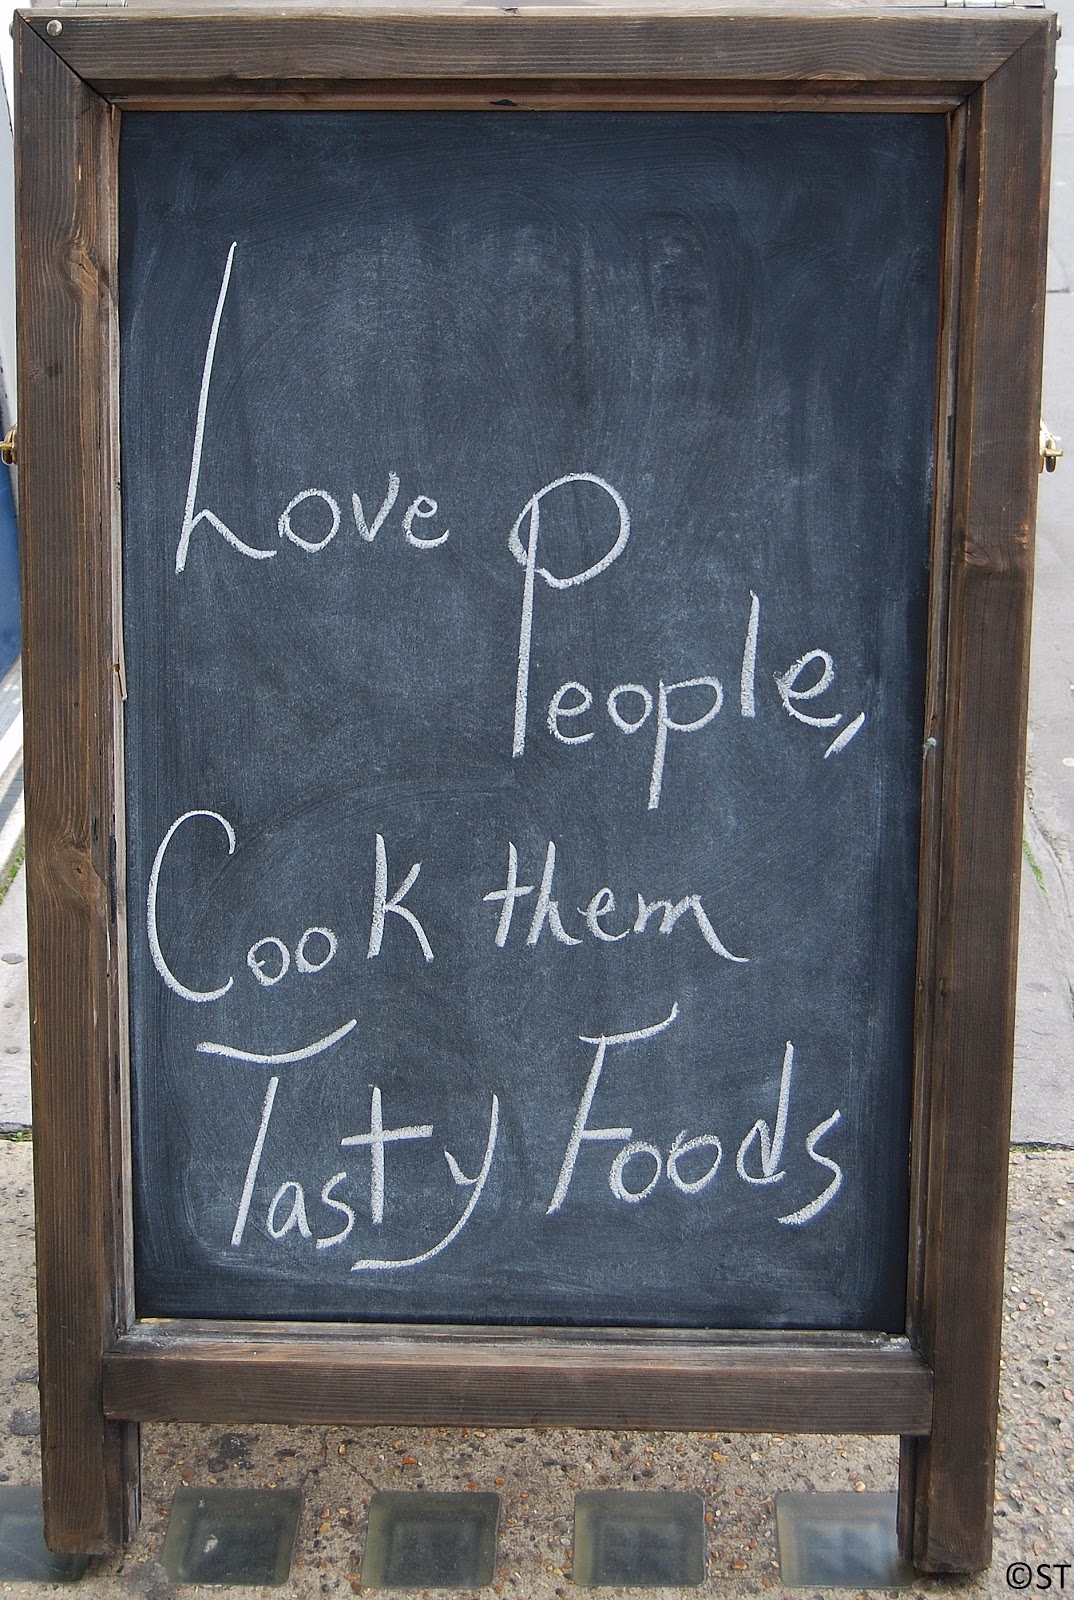 Love People,
Cook them
Tasty Foods
©ST